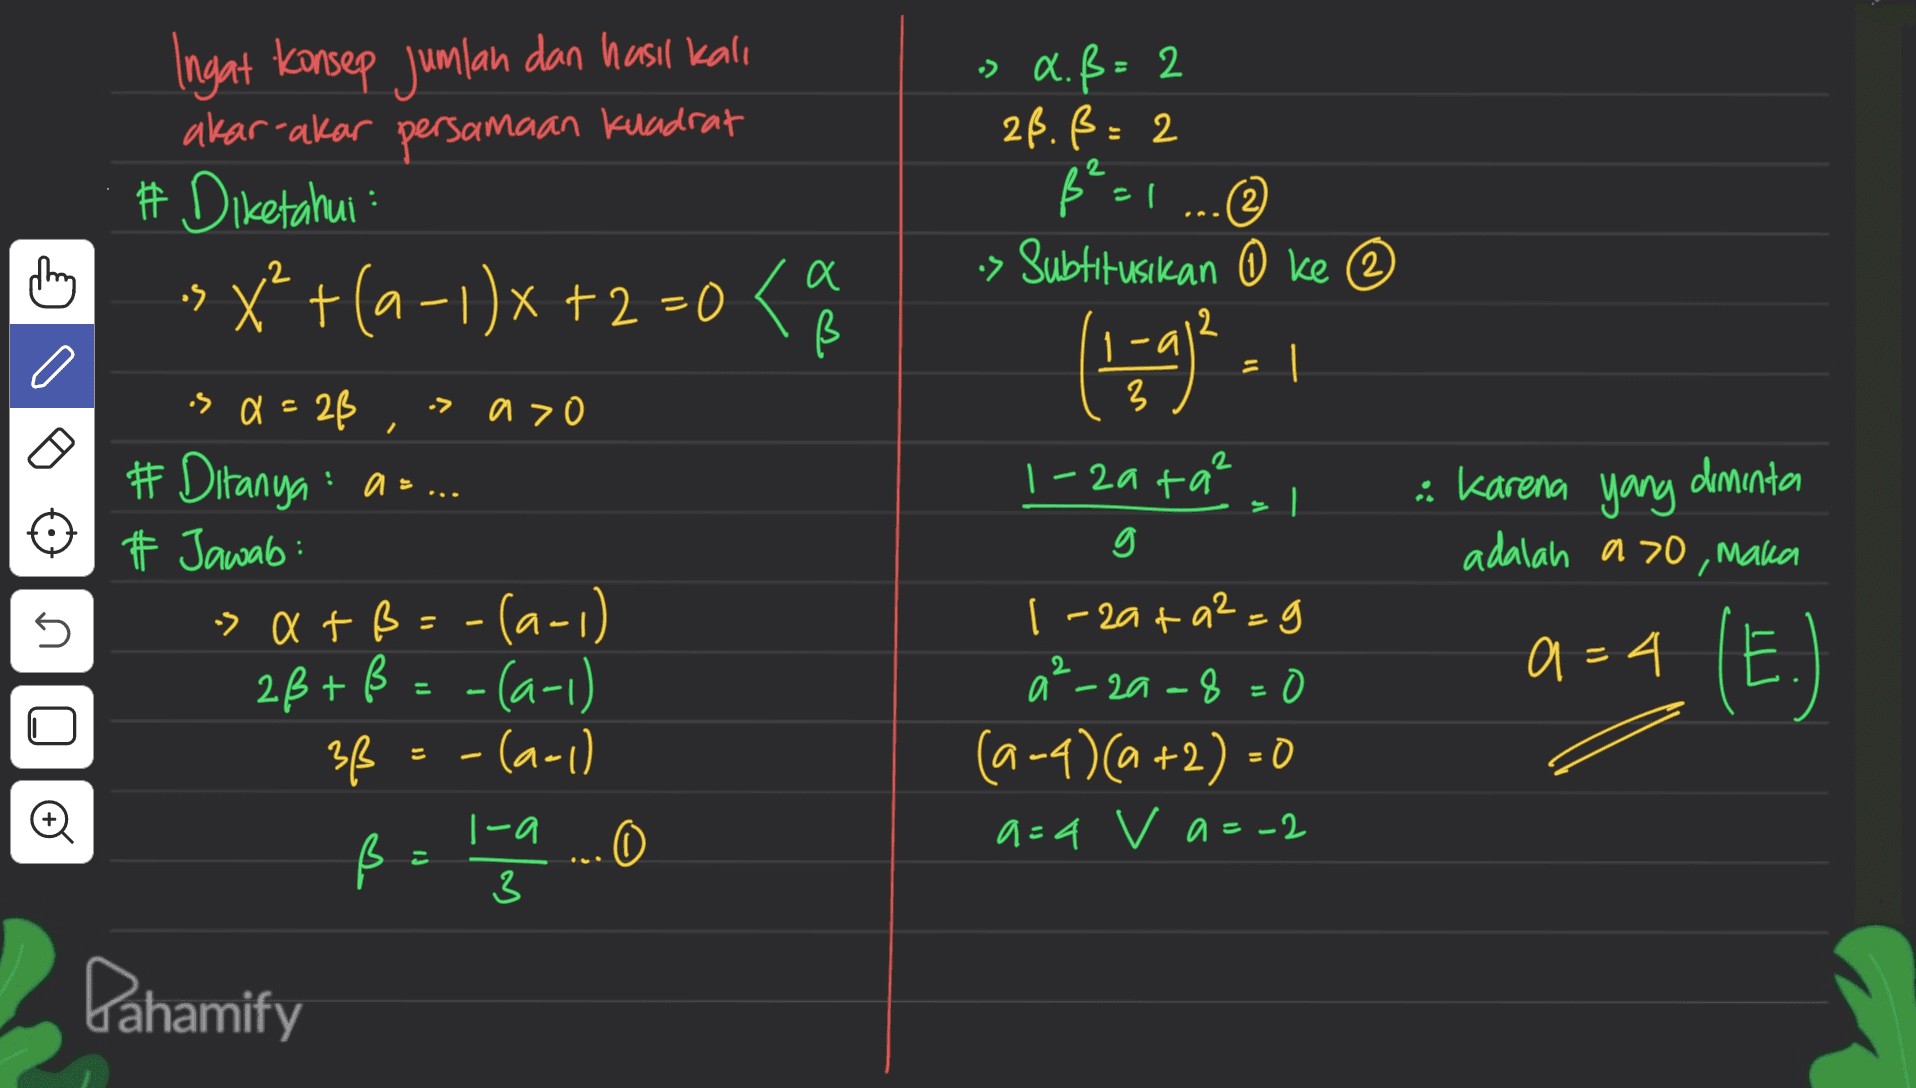 Ingat konsep jumlah dan hasil kali
akar-akar persamaan kuadrat
# Diketahui :
.> x² + (a-1)x + 2 = 0 < α β
.> α = 2β , .> a > 0
# Ditanya : a = ...
# Jawab :
.> α + β = -(a-1)
2β + β = -(a-1)
3β = -(a-1)
β = (1-a)/3 ... ①
.> α.β = 2
2β.β = 2
β² = 1 ... ②
.> Subtitusikan ① ke ②
((1-a)/3)² = 1
(1-2a+a²)/9 = 1
1-2a+a² = 9
a²-2a-8 = 0
(a-4)(a+2) = 0
a=4 V a=-2
∴ karena yang diminta
adalah a > 0 , maka
a = 4 (E.)
Pahamify